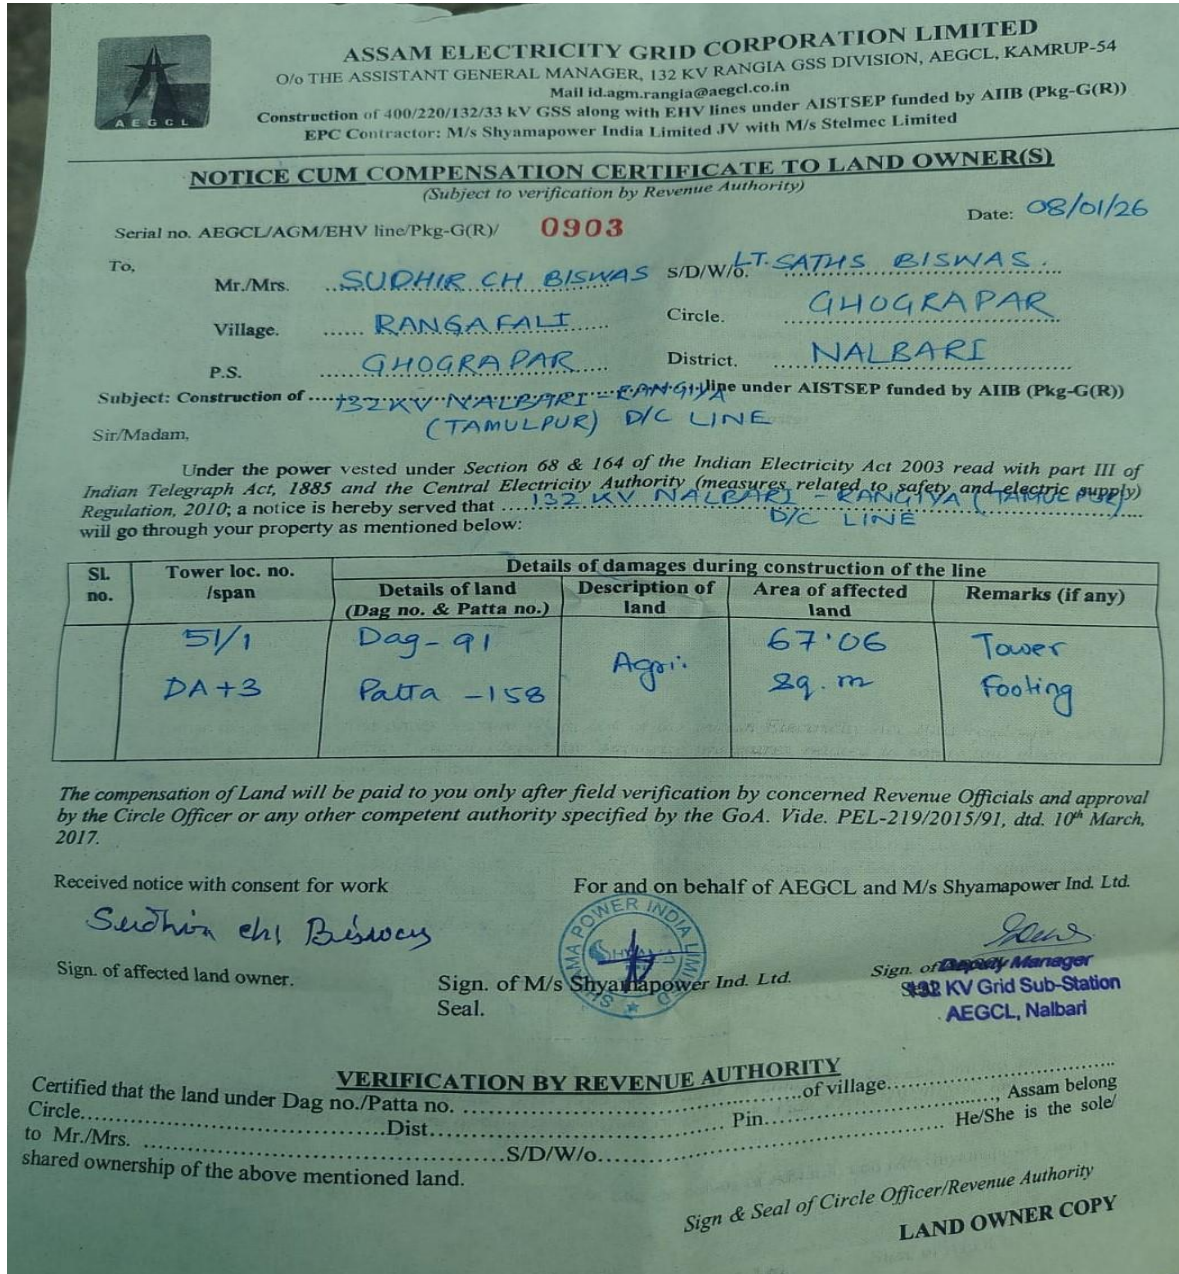 AEGCL
ASSAM ELECTRICITY GRID CORPORATION LIMITED
O/o THE ASSISTANT GENERAL MANAGER, 132 KV RANGIA GSS DIVISION, AEGCL, KAMRUP-54
Mail id.agm.rangia@aegcl.co.in
Construction of 400/220/132/33 kV GSS along with EHV lines under AISTSEP funded by AIIB (Pkg-G(R))
EPC Contractor: M/s Shyamapower India Limited JV with M/s Stelmec Limited
NOTICE CUM COMPENSATION CERTIFICATE TO LAND OWNER(S)
(Subject to verification by Revenue Authority)
Serial no. AEGCL/AGM/EHV line/Pkg-G(R)/ 0903 Date: 08/01/26
To,
Mr./Mrs. SUDHIR CH BISWAS S/D/W/o. LT. SATHS BISWAS.
Village. RANGAFALI Circle. GHOGRAPAR
P.S. GHOGRAPAR District. NALBARI
Subject: Construction of 132KV NALBARI - RANGIYA line under AISTSEP funded by AIIB (Pkg-G(R))
(TAMULPUR) D/C LINE
Sir/Madam,
Under the power vested under Section 68 & 164 of the Indian Electricity Act 2003 read with part III of
Indian Telegraph Act, 1885 and the Central Electricity Authority (measures related to safety and electric supply)
Regulation, 2010; a notice is hereby served that 132 KV NALBARI - RANGIYA (TAMULPUR)
D/C LINE
will go through your property as mentioned below:
Sl. no. Tower loc. no. /span Details of damages during construction of the line
Details of land (Dag no. & Patta no.) Description of land Area of affected land Remarks (if any)
51/1 Dag - 91 Agri. 67.06 Tower
DA+3 Patta - 158 sq. m Footing
The compensation of Land will be paid to you only after field verification by concerned Revenue Officials and approval
by the Circle Officer or any other competent authority specified by the GoA. Vide. PEL-219/2015/91, dtd. 10th March,
2017.
Received notice with consent for work For and on behalf of AEGCL and M/s Shyamapower Ind. Ltd.
Sudhir ch Biswas
SHYAMA POWER INDIA LIMITED
Sign. of affected land owner. Sign. of M/s Shyamapower Ind. Ltd. Sign. of Deputy Manager
Seal. 132 KV Grid Sub-Station
AEGCL, Nalbari
VERIFICATION BY REVENUE AUTHORITY
Certified that the land under Dag no./Patta no. of village
Circle Dist Pin , Assam belong
to Mr./Mrs. S/D/W/o He/She is the sole/
shared ownership of the above mentioned land.
Sign & Seal of Circle Officer/Revenue Authority
LAND OWNER COPY